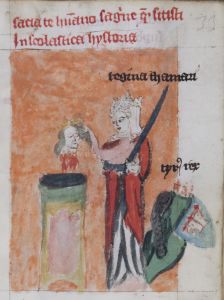 sacia te hu̅ano sa̅gu̅ie q̅ sitisti
In scolastica hystoria
regina thamari
cyrꝰ rex